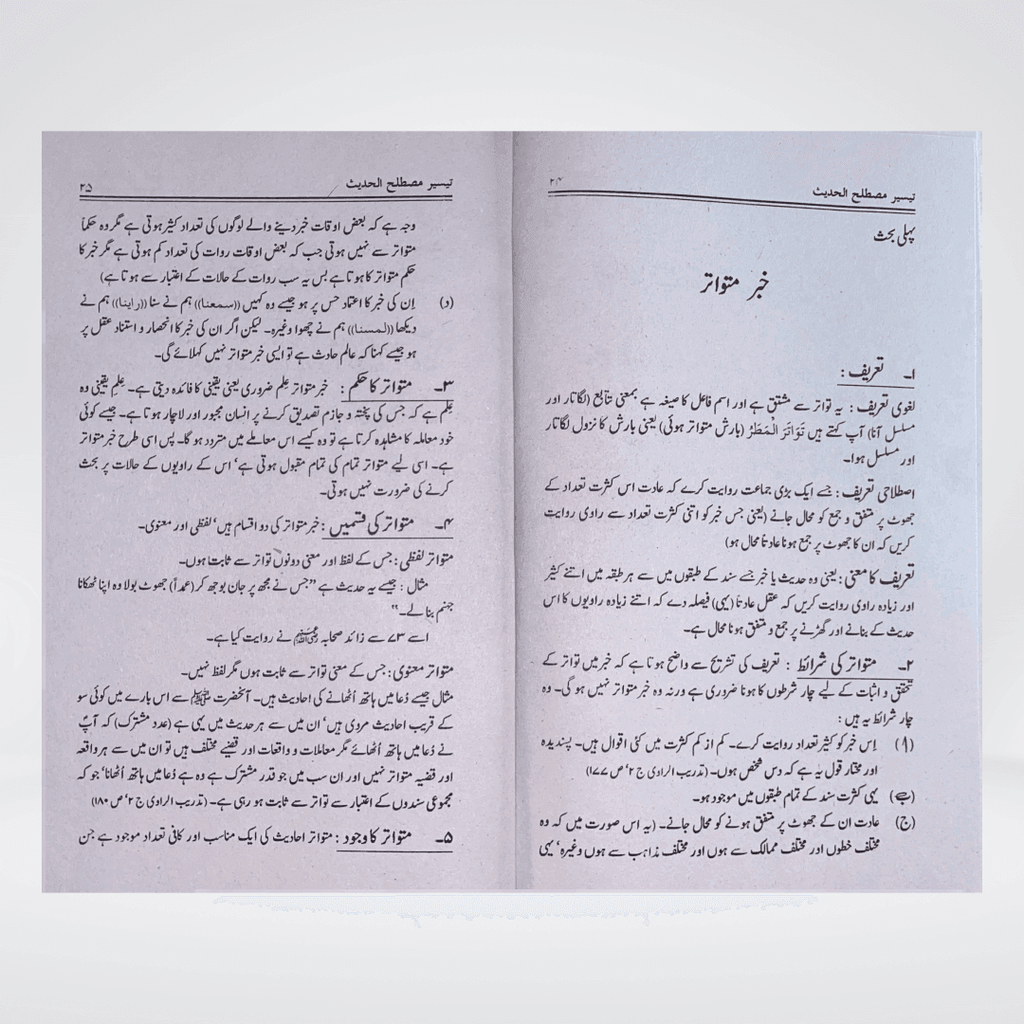 تیسیر مصطلح الحدیث ۲۴
پہلی بحث
خبر متواتر
۱۔ تعریف :
لغوی تعریف : یہ تواتر سے مشتق ہے اور اسم فاعل کا صیغہ ہے بمعنی تتابع (لگاتار اور
مسلسل آنا) آپ کہتے ہیں تَوَاتَرَ الْمَطَرُ (بارش متواتر ہوئی) یعنی بارش کا نزول لگاتار
اور مسلسل ہوا۔
اصطلاحی تعریف : جسے ایک بڑی جماعت روایت کرے کہ عادت اس کثرت تعداد کے
جھوٹ پر متفق و جمع کو محال جانے (یعنی جس خبر کو اتنی کثرت تعداد سے راوی روایت
کریں کہ ان کا جھوٹ پر جمع ہونا عادتاً محال ہو)
تعریف کا معنی : یعنی وہ حدیث یا خبر جسے سند کے طبقوں میں سے ہر طبقہ میں اتنے کثیر
اور زیادہ راوی روایت کریں کہ عقل عادتاً (یہی) فیصلہ دے کہ اتنے زیادہ راویوں کا اس
حدیث کے بنانے اور گھڑنے پر جمع و متفق ہونا محال ہے۔
۲۔ متواتر کی شرائط : تعریف کی تشریح سے واضح ہوتا ہے کہ خبر میں تواتر کے
تحقق و اثبات کے لیے چار شرطوں کا ہونا ضروری ہے ورنہ وہ خبر متواتر نہیں ہو گی۔ وہ
چار شرائط یہ ہیں :
(۱) اِس خبر کو کثیر تعداد روایت کرے۔ کم از کم کثرت میں کئی اقوال ہیں۔ پسندیدہ
اور مختار قول یہ ہے کہ دس شخص ہوں۔ (تدریب الراوی ج ۲‘ ص ۱۷۷)
(ب) یہی کثرت سند کے تمام طبقوں میں موجود ہو۔
(ج) عادت ان کے جھوٹ پر متفق ہونے کو محال جانے۔ (یہ اس صورت میں کہ وہ
مختلف خطوں اور مختلف ممالک سے ہوں اور مختلف مذاہب سے ہوں وغیرہ‘ یہی
تیسیر مصطلح الحدیث ۲۵
وجہ ہے کہ بعض اوقات خبر دینے والے لوگوں کی تعداد کثیر ہوتی ہے مگر وہ حکماً
متواتر سے نہیں ہوتی جب کہ بعض اوقات روات کی تعداد کم ہوتی ہے مگر خبر کا
حکم متواتر کا ہوتا ہے بس یہ سب روات کے حالات کے اعتبار سے ہوتا ہے)
(د) اِن کی خبر کا اعتماد حس پر ہو جیسے وہ کہیں ((سمعنا)) ہم نے سنا ((راینا)) ہم نے
دیکھا ((لمسنا)) ہم نے چھوا وغیرہ۔ لیکن اگر ان کی خبر کا انحصار و استناد عقل پر
ہو جیسے کہنا کہ عالم حادث ہے تو ایسی خبر متواتر نہیں کہلائے گی۔
۳۔ متواتر کا حکم : خبر متواتر عِلم ضروری یعنی یقینی کا فائدہ دیتی ہے۔ عِلمِ یقینی وہ
عِلم ہے کہ جس کی پختہ و جازم تصدیق کرنے پر انسان مجبور اور لاچار ہوتا ہے۔ جیسے کوئی
خود معاملہ کا مشاہدہ کرتا ہے تو وہ کیسے اس معاملے میں متردد ہو گا۔ پس اسی طرح خبر متواتر
ہے۔ اسی لیے متواتر تمام کی تمام مقبول ہوتی ہے‘ اس کے راویوں کے حالات پر بحث
کرنے کی ضرورت نہیں ہوتی۔
۴۔ متواتر کی قسمیں : خبر متواتر کی دو اقسام ہیں‘ لفظی اور معنوی۔
متواتر لفظی : جس کے لفظ اور معنی دونوں تواتر سے ثابت ہوں۔
مثال : جیسے یہ حدیث ہے ”جس نے مجھ پر جان بوجھ کر (عمداً) جھوٹ بولا وہ اپنا ٹھکانا
جہنم بنا لے۔“
اسے ۷۳ سے زائد صحابہ رضی اللہ عنہم نے روایت کیا ہے۔
متواتر معنوی : جس کے معنی تواتر سے ثابت ہوں مگر لفظ نہیں۔
مثال جیسے دُعا میں ہاتھ اُٹھانے کی احادیث ہیں۔ آنحضرت ﷺ سے اس بارے میں کوئی سو
کے قریب احادیث مروی ہیں‘ ان میں سے ہر حدیث میں یہی ہے (عدد مشترک) کہ آپؐ
نے دُعا میں ہاتھ اُٹھائے مگر معاملات و واقعات اور قضیے مختلف ہیں تو ان میں سے ہر واقعہ
اور قضیہ متواتر نہیں اور ان سب میں جو قدر مشترک ہے وہ ہے دُعا میں ہاتھ اُٹھانا‘ جو کہ
مجموعی سندوں کے اعتبار سے تواتر سے ثابت ہو رہی ہے۔ (تدریب الراوی ج ۲‘ ص ۱۸۰)
۵۔ متواتر کا وجود : متواتر احادیث کی ایک مناسب اور کافی تعداد موجود ہے جن